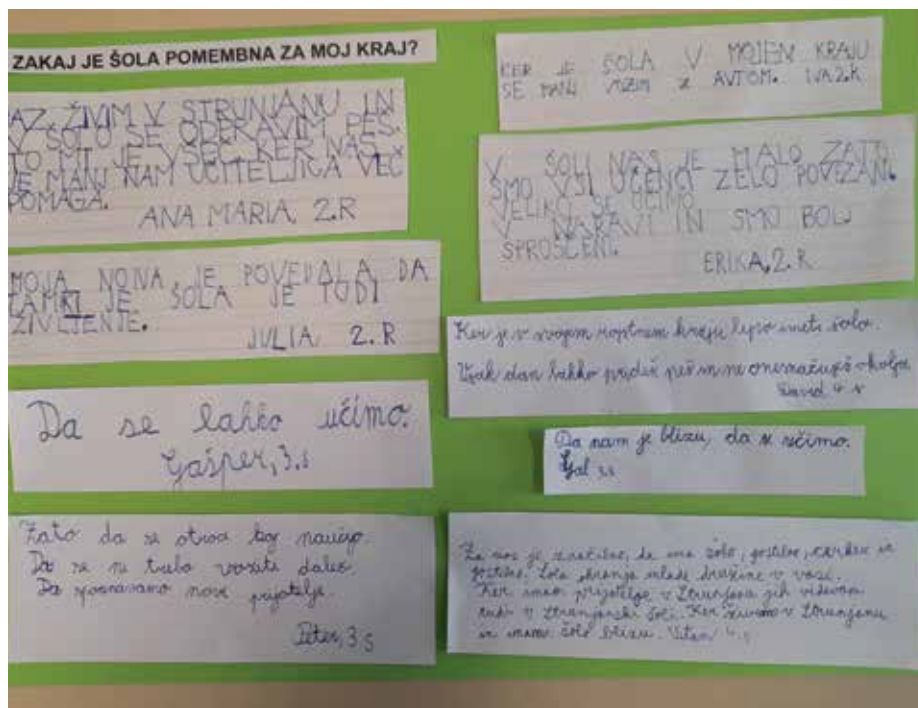 ZAKAJ JE ŠOLA POMEMBNA ZA MOJ KRAJ?
JAZ ŽIVIM V STRUNJANU IN
V ŠOLO SE ODPRAVIM PEŠ.
TO MI JE VŠEČ KER NAS
JE MANJ NAM UČITELJICA VEČ
POMAGA.
ANA MARIA, 2.R
MOJA NONA JE POVEDALA DA
JE ŠOLA JE TUDI
ŽIVLJENJE.
JULIA, 2.R
Da se lahko učimo.
Gašper, 3.s
Zato da se otroci kaj naučijo.
Da se ni treba voziti daleč.
Da spoznavamo nove prijatelje.
Peter, 3.s
KER JE ŠOLA V MOJEM KRAJU
SE MANJ VOZIM Z AVTOM. IVA 2.R
V ŠOLI NAS JE MALO ZATO
SMO VSI UČENCI ZELO POVEZANI.
VELIKO SE UČIMO
V NARAVI IN SMO BOLJ
SPROŠČENI.
ERIKA, 2.R
Ker je v svojem kraju lepo imeti šolo.
Vsak dan lahko prideš peš in ne onesnažuješ okolja.
David 4.s
Da nam je blizu, da se učimo.
Gal 3.s
Za nas je značilno, da ima šolo, gostilno, cerkev in
Šola ohranja mlade družine v vasi.
Ker imam prijatelje v Strunjanu jih videvam
tudi v Strunjanski šoli. Ker živimo v Strunjanu
in imam šolo blizu.